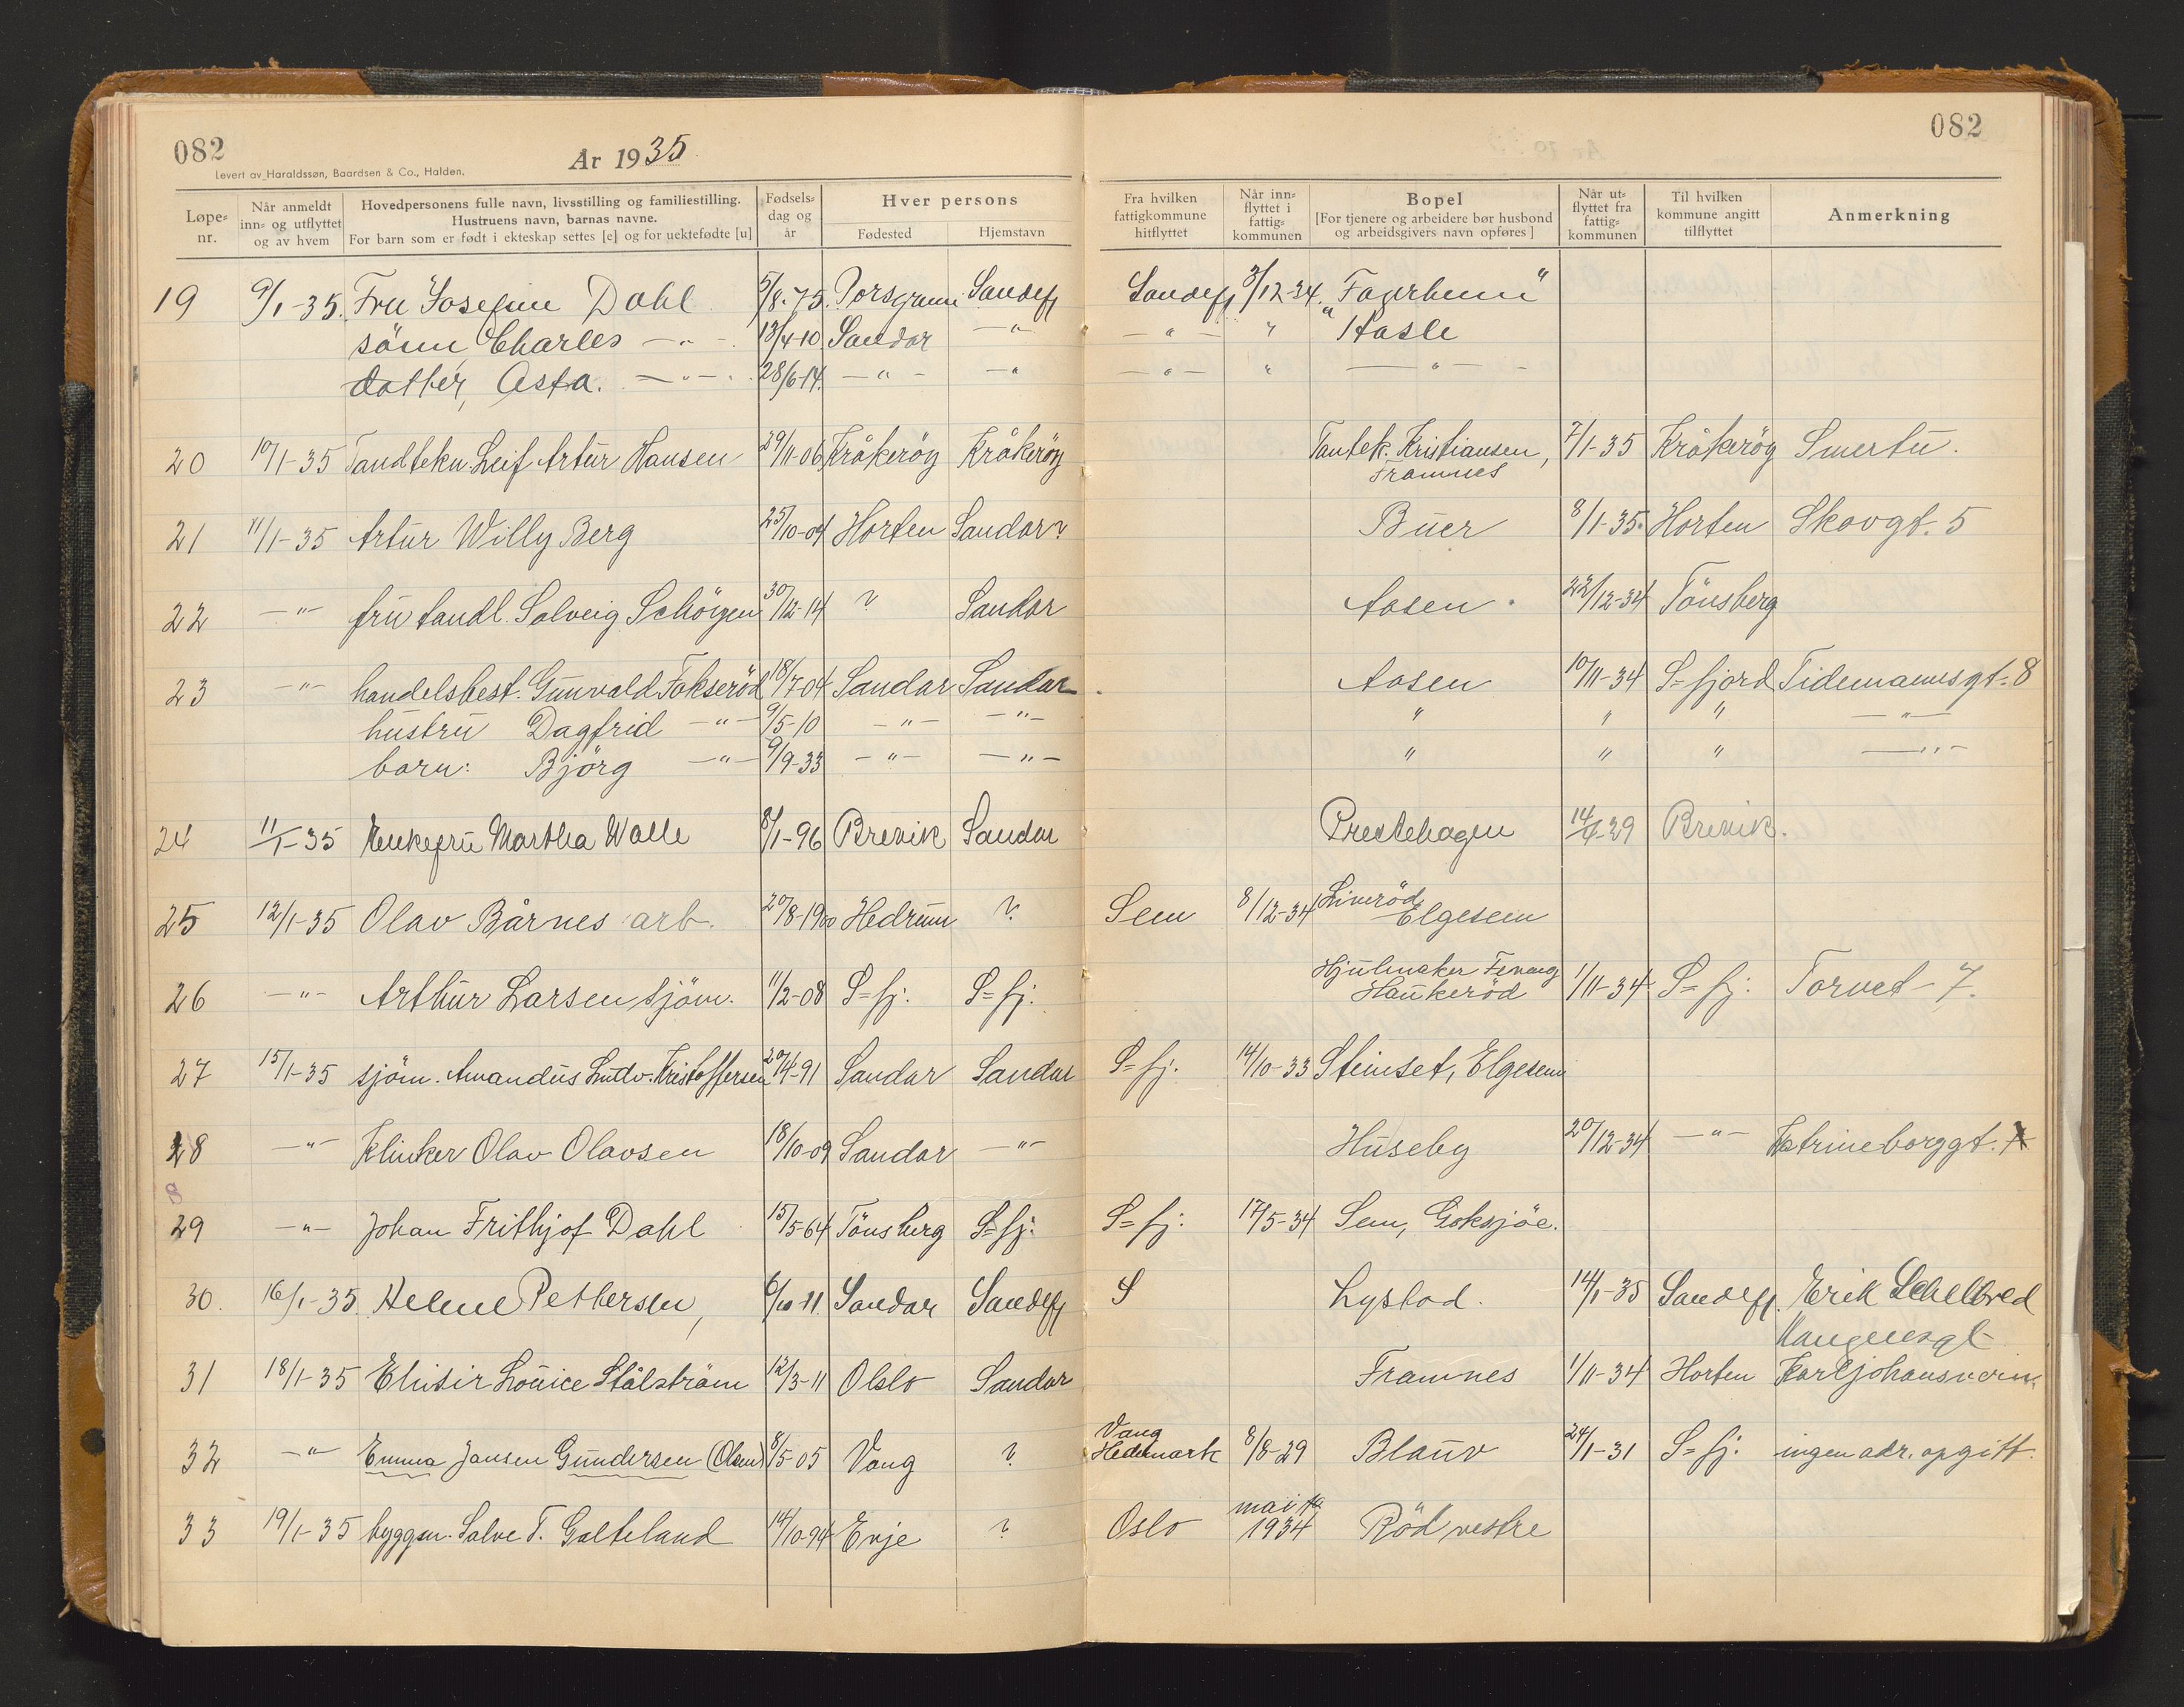 082
Levert av Haraldssøn, Baardsen & Co., Halden.
År 1935
082
Løpe-nr.
Når anmeldt inn- og utflyttet og av hvem
Hovedpersonens fulle navn, livsstilling og familiestilling. Hustruens navn, barnas navne. For barn som er født i ekteskap settes [e] og for uektefødte [u]
Fødsels-dag og år
Hver persons
Fødested
Hjemstavn
Fra hvilken fattigkommune hitflyttet
Når inn-flyttet i fattig-kommunen
Bopel
[For tjenere og arbeidere bør husbond og arbeidsgivers navn opføres]
Når ut-flyttet fra fattig-kommunen
Til hvilken kommune angitt tilflyttet
Anmerkning
19 9/1-35. Fru Josefine Dahl 5/8-75. Porsgrunn Sandefj Sandefj 3/12-34. "Fagerheim"
sönn, Charles -"- 13/4-10 Sandar -"- -"- " Hasle
datter, Asta. -"- 28/6-14. -"- -" -"- " -"-
20 10/1-35 Tandtekn. Leif Artur Hansen 29/11-06 Kråkeröy Kråkeröy Tantek. Kristiansen, Framnes 7/1-35 Kråkeröy Smertu.
21 11/1-35 Artur Willy Berg 25/10-04 Horten Sandar? Buer 8/1-35. Horten Skovgt. 5
22 -"- fru tandl. Solveig Schöyen 30/12-14 ? Sandar Aasen. 22/12-34 Tönsberg
23 -"- handelsbest. Gunvald Fokseröd 18/7-04 Sandar Sandar Aasen 10/11-34 S=fjord Tidemannsgt. 8
hustru Dagfrid -"- 9/5-10 -"- -"- " " " -"-
barn: Björg -"- 9/9-33 -"- -"- " " " -"-
24 11/1-35 Enkefru Martha Walle 8/1-96 Brevik Sandar Prestehagen 14/4-29 Brevik.
25 12/1-35 Olav Bårnes arb. 20/8-1900 Hedrum ? Sem 8/12-34 Liveröd, Elgesem
26 -"- Arthur Larsen sjöm. 11/2-08 S=fj. S=fj. Hjulmaker Haukeröd 1/11-34 S=fj. Torvet 7.
27 15/1-35 sjöm. Amandus Ludv. Kristoffersen 20/4-91 Sandar Sandar S=fj. 14/10-33 Steinset, Elgesem
28 -"- Klinker Olav Olavsen 18/10-09 Sandar -"- Huseby 20/12-34 -"- Katrineborggt.
29 -"- Johan Frithjof Dahl 15/5-64 Tönsberg S=fj. S=fj. 17/5-34 Sem, Goksjöe.
30. 16/1-35. Helene Pettersen, 6/10-11. Sandar Sandefj S Lystad. 14/1-35 Sandefj. Erik Schelbred
Haugensgt
31 18/1-35 Louice Stålström 12/3-11 Olslo Sandar Framnes 1/11-34 Horten Karljohansvern.
32 -"- Emma Jansen Gundersen (Olsen) 8/5-05 Vang ? Vang Hedemark 8/8-29 Blauv 24/1-31 S=fj. ingen adr. opgitt.
33 19/1-35 byggm. Salve T. Galteland 14/10-94 Evje ? Oslo mai 1934 Röd vestre